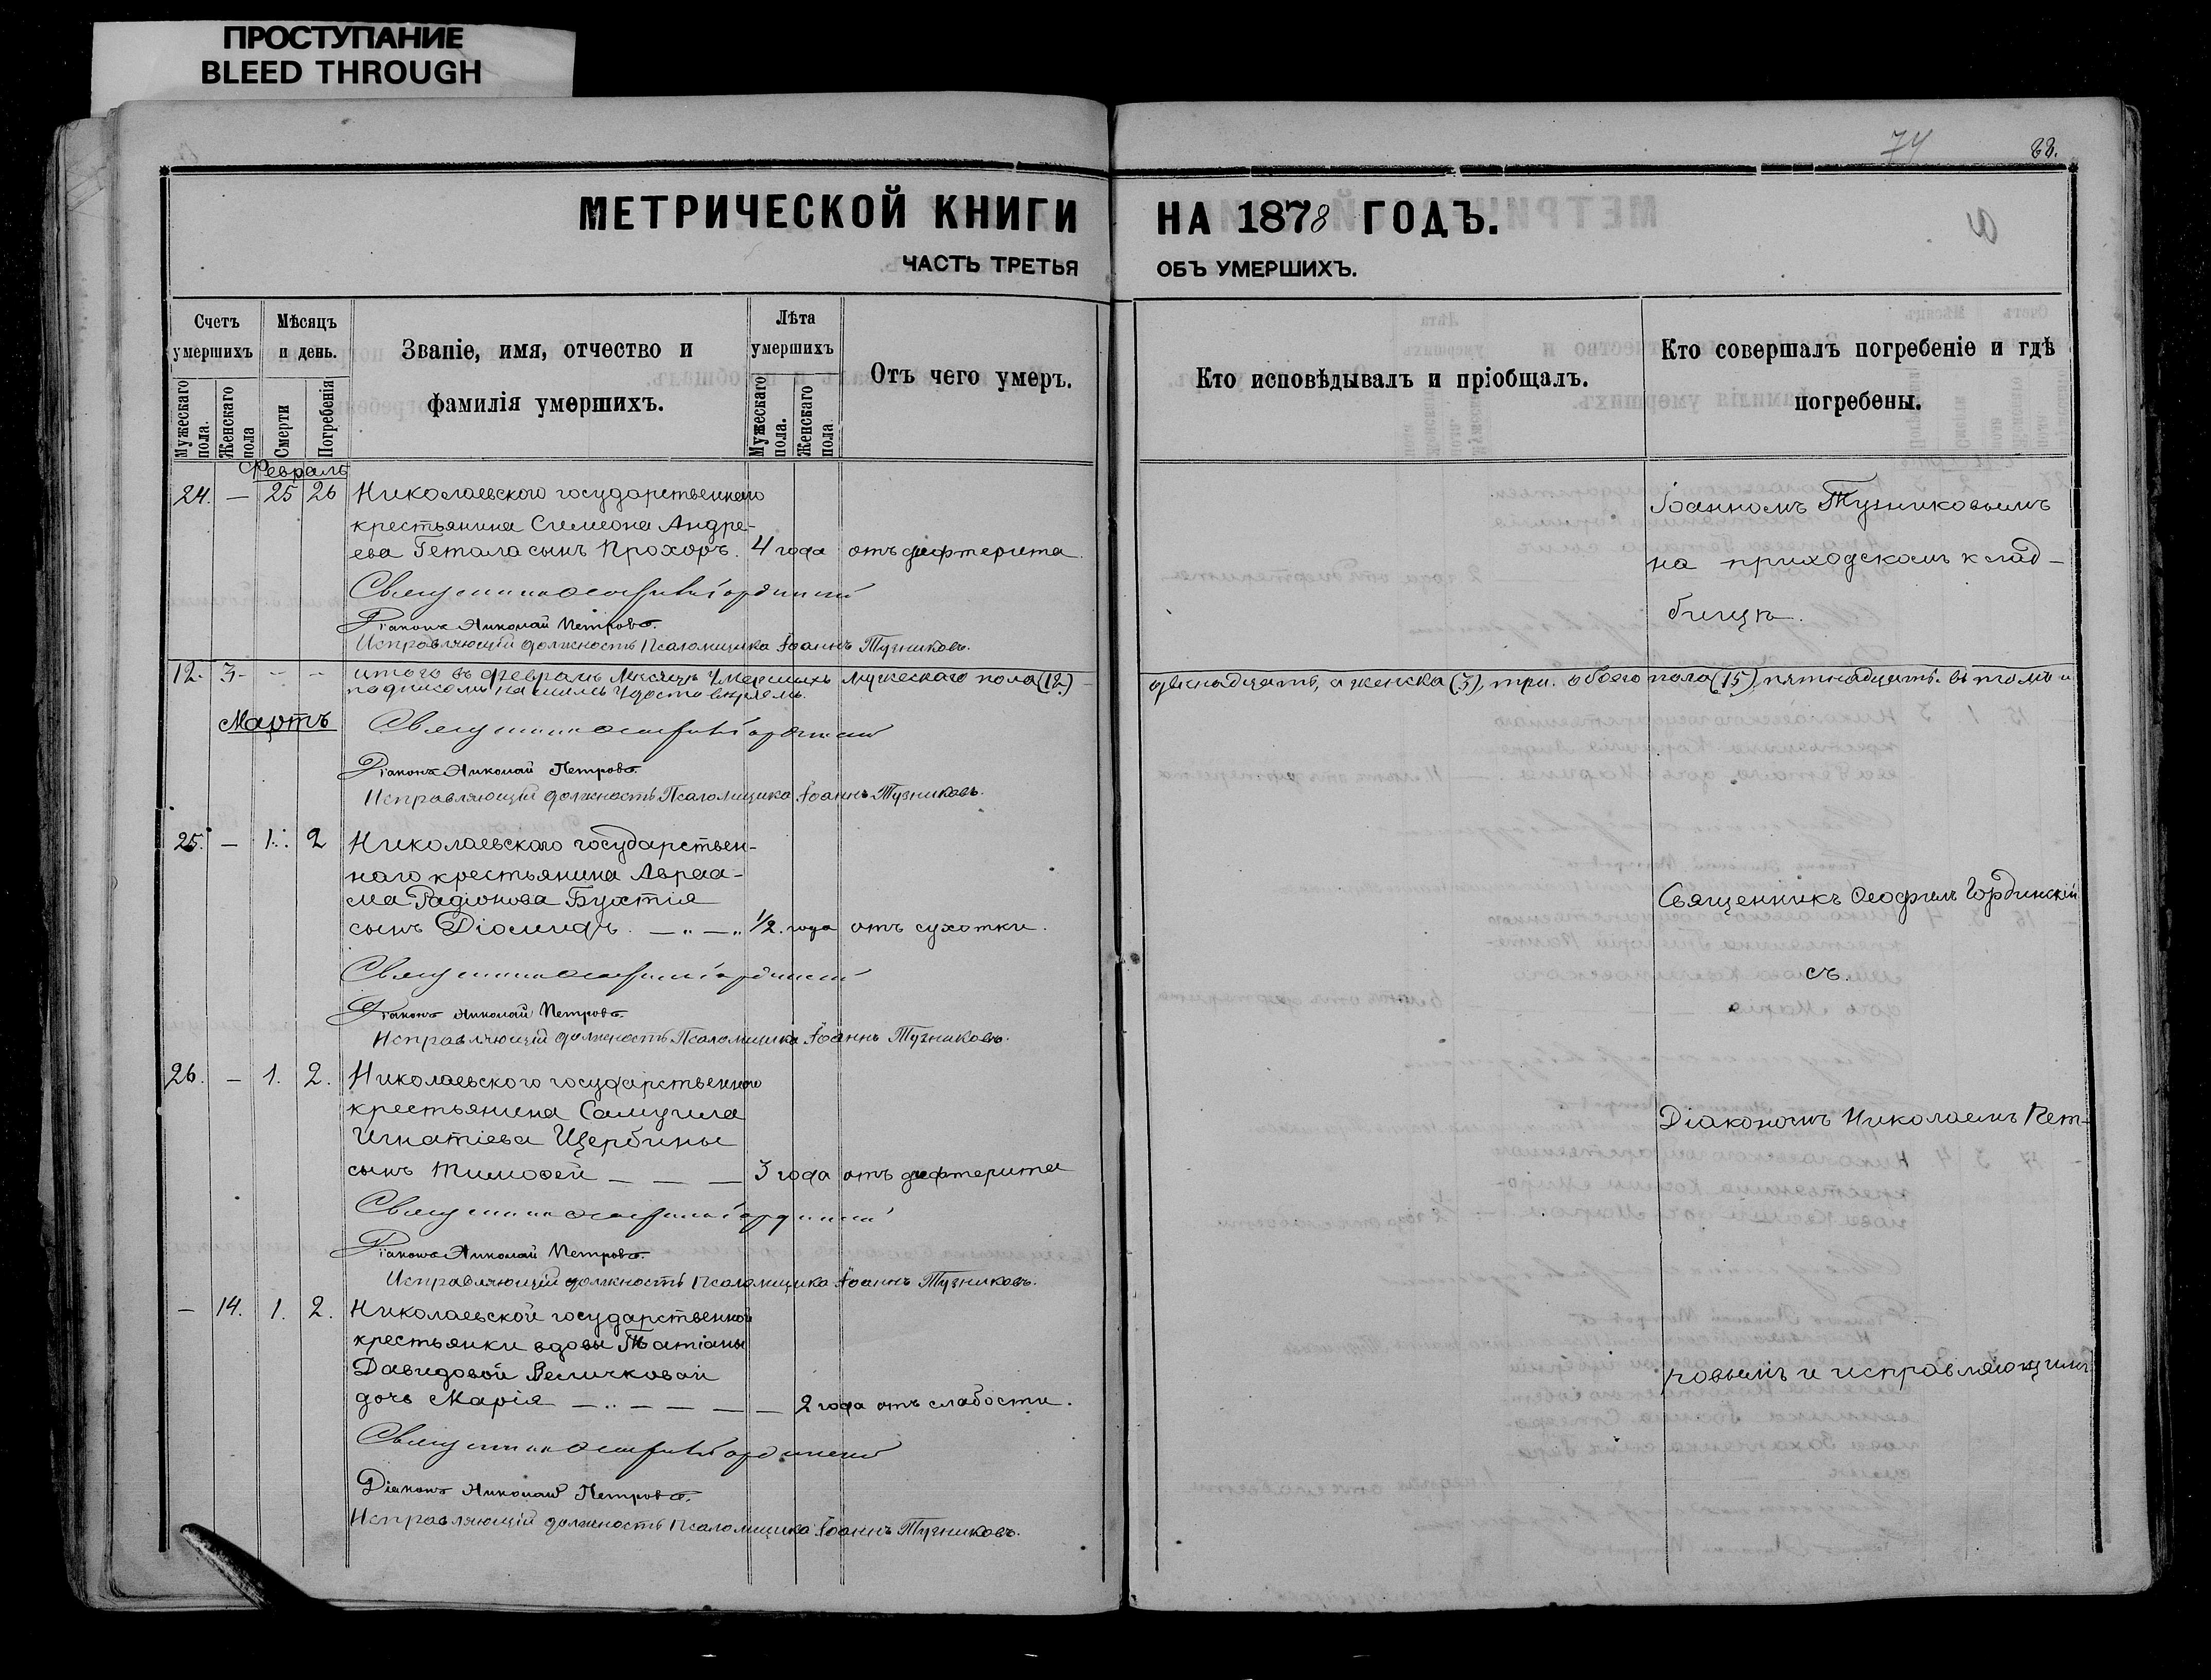 ПРОСТУПАНИЕ
BLEED THROUGH
74
88.
МЕТРИЧЕСКОЙ КНИГИ НА 1878 ГОДЪ.
ЧАСТЬ ТРЕТЬЯ ОБЪ УМЕРШИХЪ.
Счетъ умершихъ
Мужескаго пола.
Женскаго пола
Мѣсяцъ и день.
Смерти
Погребенія
Званіе, имя, отчество и фамилія умершихъ.
Лѣта умершихъ
Мужескаго пола.
Женскаго пола
Отъ чего умеръ.
Кто исповѣдывалъ и пріобщалъ.
Кто совершалъ погребеніе и гдѣ погребены.
Февраль
24. — 25 26 Николаевского государственнаго
крестьянина Симеона Андре-
ева Гетала сынъ Прохоръ. 4 года отъ дифтерита
Іоанномъ Тузниковымъ
на приходскомъ клад-
бищѣ.
Священникъ Ѳеофилъ Гординскій
Діаконъ Николай Петровъ.
Исправляющій должность Псаломщика Іоаннъ Тузниковъ.
12. 3 - - - итого въ февралѣ мѣсяцѣ умершихъ мужескаго пола (12) двѣнадцать, а женска (3), три. обоего пола (15) пятнадцать. въ томъ и
подписомъ нашимъ удостовѣряемъ.
Мартъ
Священникъ Ѳеофилъ Гординскій
Діаконъ Николай Петровъ.
Исправляющій должность Псаломщика Іоаннъ Тузниковъ.
25. — 1. 2 Николаевскаго государствен-
наго крестьянина Авраа-
ма Радіонова Бухтія
сынъ Діомидъ. — „ — „ 1/2. года отъ сухотки.
Священникъ Ѳеофилъ Гординскій
съ.
Священникъ Ѳеофилъ Гординскій
Діаконъ Николай Петровъ.
Исправляющій должность Псаломщика Іоаннъ Тузниковъ.
26. — 1. 2. Николаевского государственного
крестьянина Самуила
Игнатіева Щербины
сынъ Тимоѳей — — — 3 года отъ дифтерита
Діакономъ Николаемъ Пет-
Священникъ Ѳеофилъ Гординскій
Діаконъ Николай Петровъ.
Исправляющій должность Псаломщика Іоаннъ Тузниковъ.
— 14. 1. 2. Николаевской государственной
крестьянки вдовы Татіаны
Давидовой Величковой
дочь Марія — .. — — — — 2 года отъ слабости.
ровымъ и исправляющимъ
Священникъ Ѳеофилъ Гординскій
Діаконъ Николай Петровъ.
Исправляющій должность Псаломщика Іоаннъ Тузниковъ.